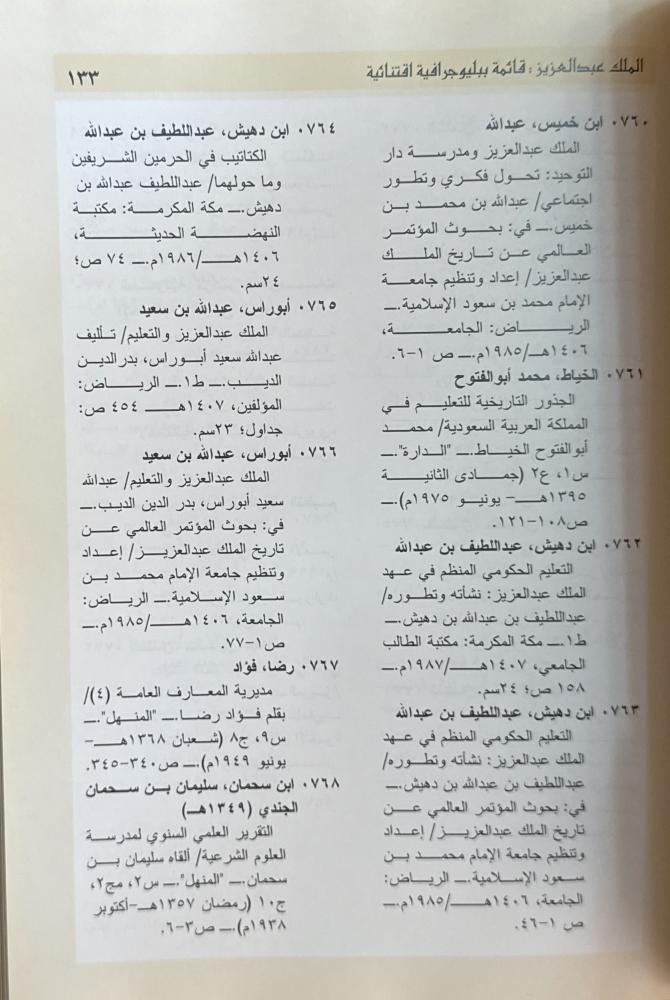 الملك عبدالعزيز: قائمة ببليوجرافية اقتنائية
١٣٣
٠٧٦٠ ابن خميس، عبدالله
الملك عبدالعزيز ومدرسة دار
التوحيد: تحول فكري وتطور
اجتماعي/ عبدالله بن محمد بن
خميس.ــ في: بحوث المؤتمر
العالمي عن تاريخ الملك
عبدالعزيز/ إعداد وتنظيم جامعة
الإمام محمد بن سعود الإسلامية.ــ
الرياض: الجامعة،
١٤٠٦هـ/١٩٨٥م.ــ ص ١-٦.
٠٧٦١ الخياط، محمد أبوالفتوح
الجذور التاريخية للتعليم في
المملكة العربية السعودية/ محمد
أبوالفتوح الخياط.ــ "الدارة".ــ
س١، ع٢ (جمادى الثانية
١٣٩٥هـ- يونيو ١٩٧٥م).ــ
ص١٠٨-١٢١.
٠٧٦٢ ابن دهيش، عبداللطيف بن عبدالله
التعليم الحكومي المنظم في عهد
الملك عبدالعزيز: نشأته وتطوره/
عبداللطيف بن عبدالله بن دهيش.ــ
ط١.ــ مكة المكرمة: مكتبة الطالب
الجامعي، ١٤٠٧هـ/١٩٨٧م.ــ
١٥٨ ص؛ ٢٤سم.
٠٧٦٣ ابن دهيش، عبداللطيف بن عبدالله
التعليم الحكومي المنظم في عهد
الملك عبدالعزيز: نشأته وتطوره/
عبداللطيف بن عبدالله بن دهيش.ــ
في: بحوث المؤتمر العالمي عن
تاريخ الملك عبدالعزيز/ إعداد
وتنظيم جامعة الإمام محمد بن
سعود الإسلامية.ــ الرياض:
الجامعة، ١٤٠٦هـ/١٩٨٥م.ــ
ص ١-٤٦.
٠٧٦٤ ابن دهيش، عبداللطيف بن عبدالله
الكتاتيب في الحرمين الشريفين
وما حولهما/ عبداللطيف عبدالله بن
دهيش.ــ مكة المكرمة: مكتبة
النهضة الحديثة،
١٤٠٦هـ/١٩٨٦م.ــ ٧٤ ص؛
٢٤سم.
٠٧٦٥ أبوراس، عبدالله بن سعيد
الملك عبدالعزيز والتعليم/ تأليف
عبدالله سعيد أبوراس، بدرالدين
الديب.ــ ط١.ــ الرياض:
المؤلفين، ١٤٠٧هـ ٤٥٤ ص:
جداول؛ ٢٣سم.
٠٧٦٦ أبوراس، عبدالله بن سعيد
الملك عبدالعزيز والتعليم/ عبدالله
سعيد أبوراس، بدر الدين الديب.ــ
في: بحوث المؤتمر العالمي عن
تاريخ الملك عبدالعزيز/ إعداد
وتنظيم جامعة الإمام محمد بن
سعود الإسلامية.ــ الرياض:
الجامعة، ١٤٠٦هـ/١٩٨٥م.ــ
ص١-٧٧.
٠٧٦٧ رضا، فؤاد
مديرية المعارف العامة (٤)/
بقلم فؤاد رضا.ــ "المنهل".ــ
س٩، ج٨ (شعبان ١٣٦٨هـ-
يونيو ١٩٤٩م).ــ ص٣٤٠-٣٤٥.
٠٧٦٨ ابن سحمان، سليمان بن سحمان
الجندي (١٣٤٩هـ)
التقرير العلمي السنوي لمدرسة
العلوم الشرعية/ ألقاه سليمان بن
سحمان.ــ "المنهل".ــ س٢، مج٢،
ج١٠ (رمضان ١٣٥٧هـ-أكتوبر
١٩٣٨م).ــ ص٣-٦.